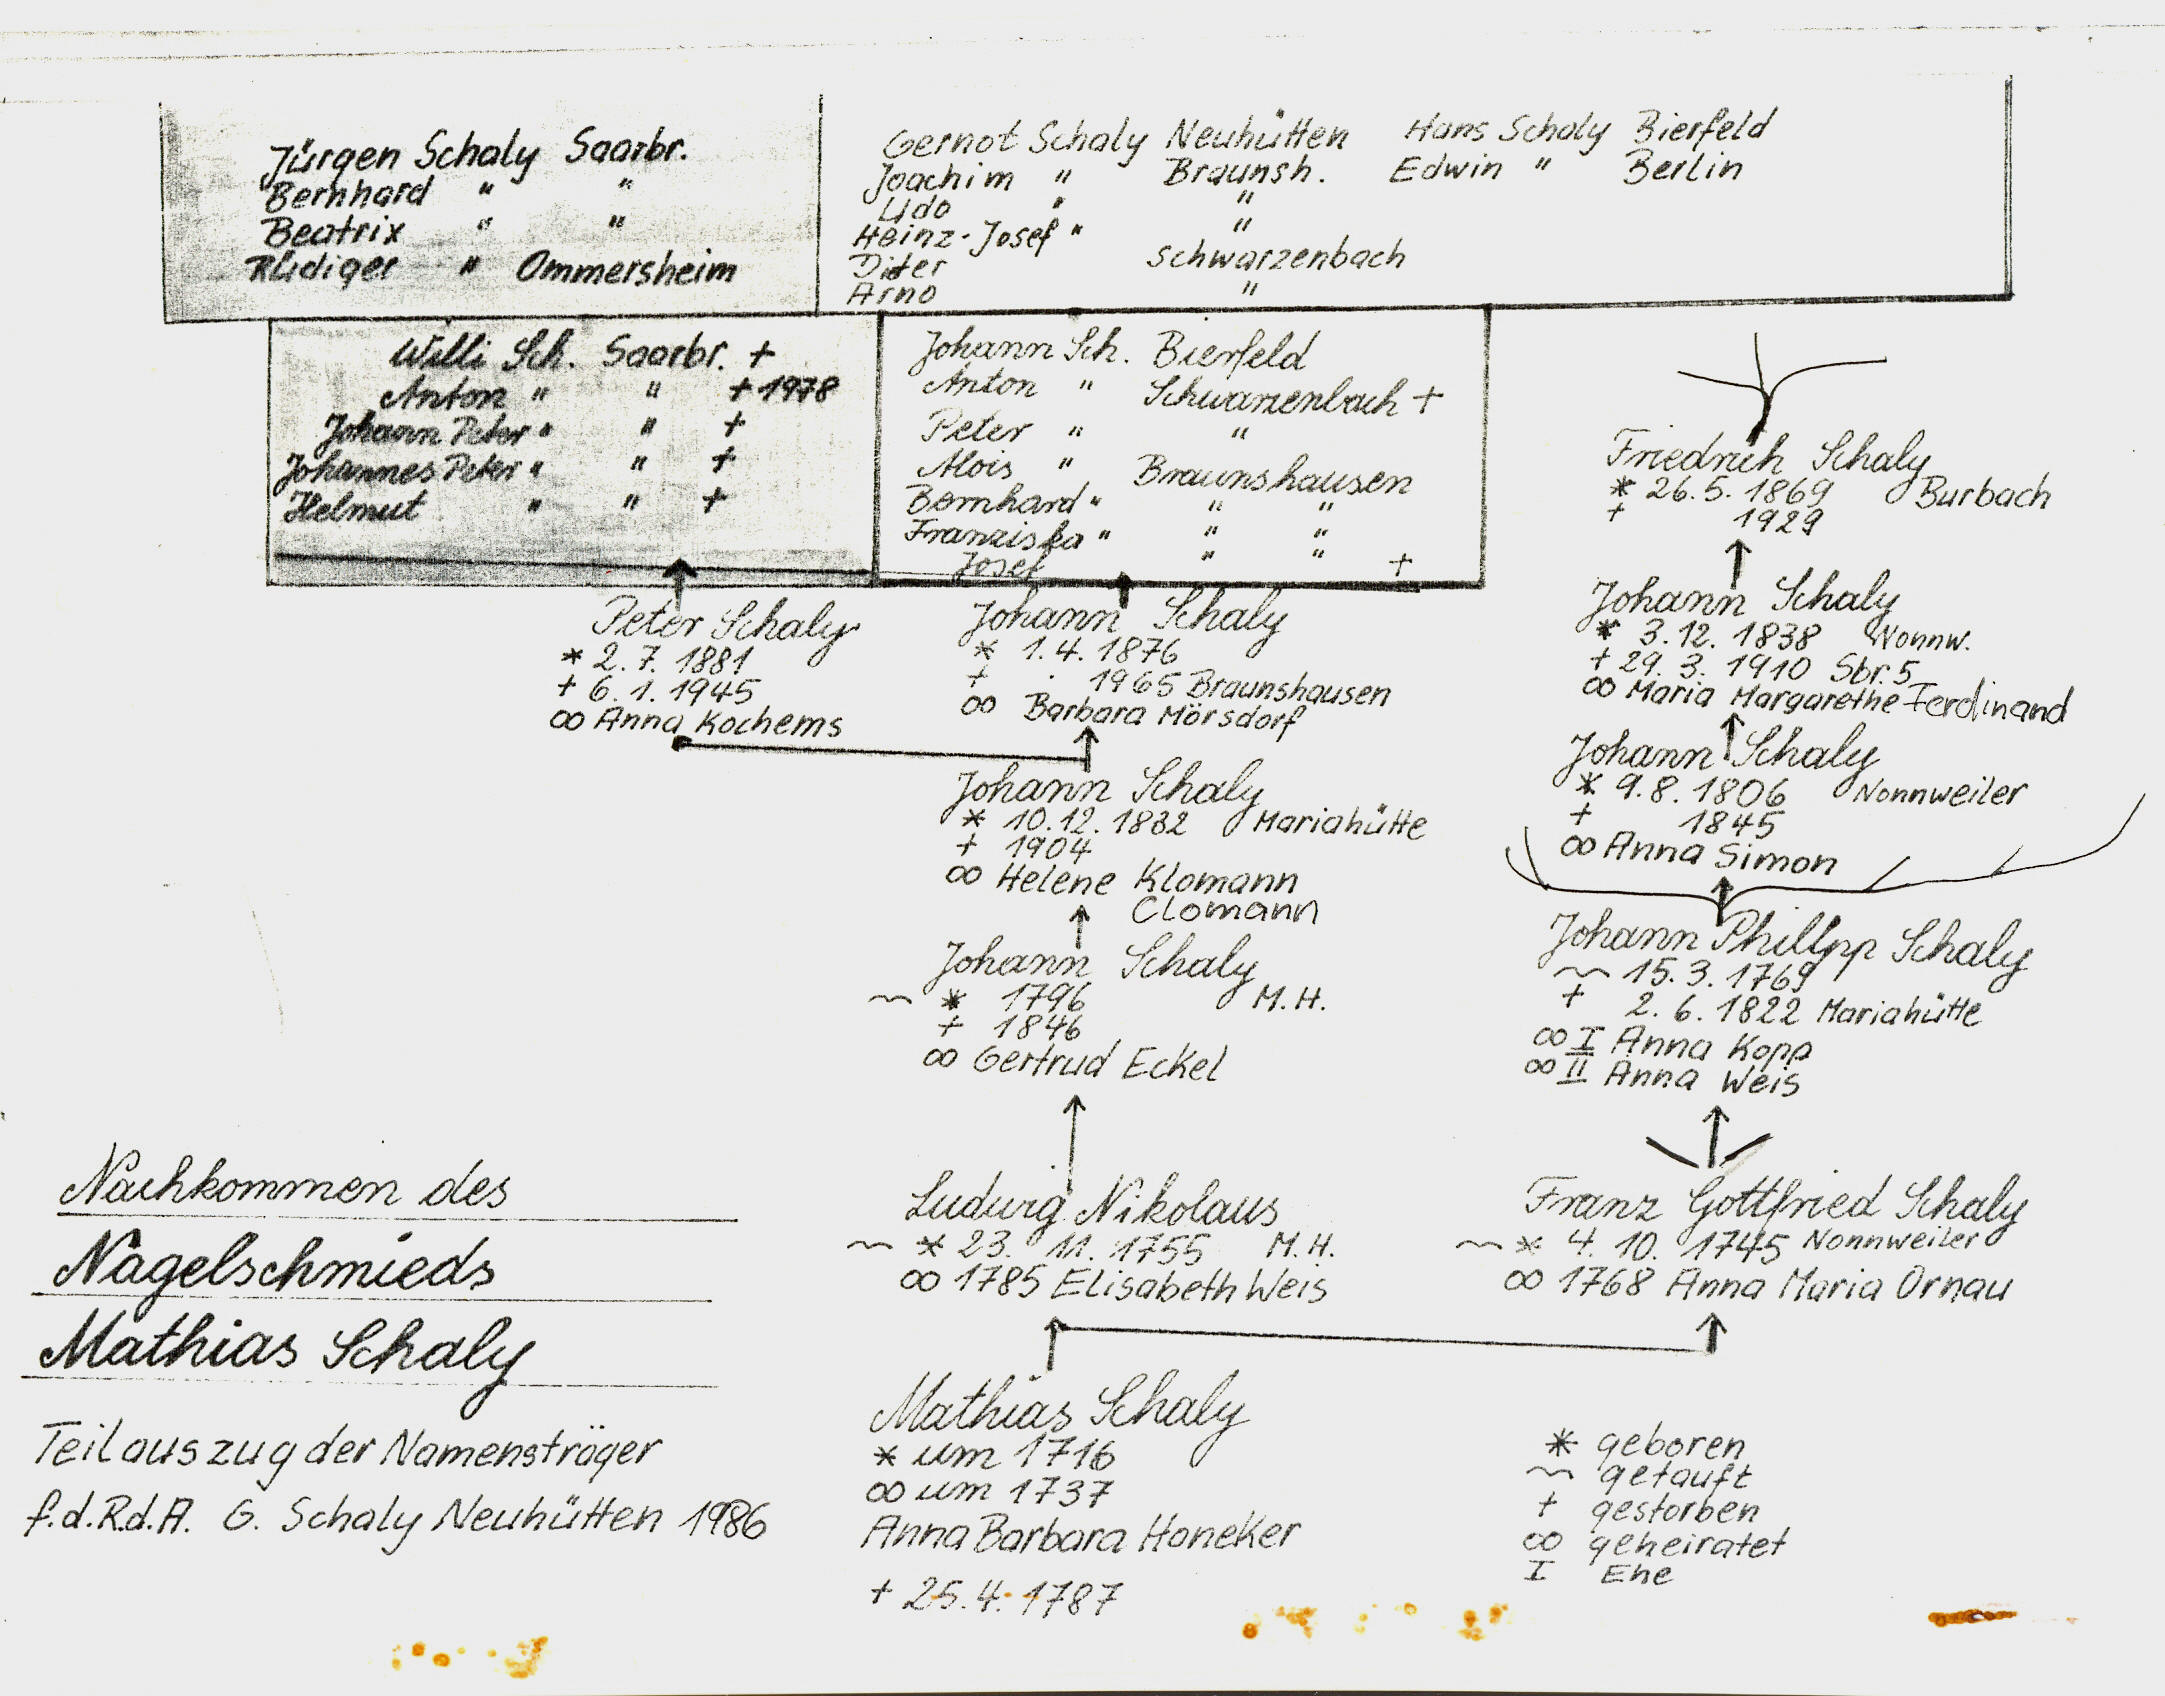 Jürgen Schaly Saarbr.
Bernhard " "
Beatrix " "
Rüdiger " Ommersheim
Gernot Schaly Neuhütten Hans Schaly Bierfeld
Joachim " Braunsh. Edwin " Berlin
Udo " "
Heinz-Josef " "
Diter Schwarzenbach
Arno "
Willi Sch. Saarbr. +
Anton " " + 1978
Johann Peter " " +
Johannes Peter " " +
Helmut " " +
Johann Sch. Bierfeld
Anton " Schwarzenbach +
Peter " "
Alois " Braunshausen
Bernhard " " "
Franziska " " "
Josef " " +
Friedrich Schaly
* 26.5.1869 Burbach
+ 1929
Peter Schaly
* 2.7.1881
+ 6.1.1945
∞ Anna Kochems
Johann Schaly
* 1.4.1876
+ . 1965 Braunshausen
∞ Barbara Mörsdorf
Johann Schaly
* 3.12.1838 Nonnw.
+ 29.3.1910 Sbr.5
∞ Maria Margarethe Ferdinand
Johann Schaly
* 10.12.1832 Mariahütte
+ 1904
∞ Helene Klomann
Clomann
Johann Schaly
* 9.8.1806 Nonnweiler
+ 1845
∞ Anna Simon
Johann Schaly
~ * 1796 M.H.
+ 1846
∞ Gertrud Eckel
Johann Phillpp Schaly
~ 15.3.1769
+ 2.6.1822 Mariahütte
∞ I Anna Kopp
∞ II Anna Weis
Ludwig Nikolaus
~ * 23. 11. 1755 M.H.
∞ 1785 Elisabeth Weis
Franz Gottfried Schaly
~ * 4.10.1745 Nonnweiler
∞ 1768 Anna Maria Ornau
Nachkommen des
Nagelschmieds
Mathias Schaly
Teilauszug der Namensträger
f.d.R.d.A. G. Schaly Neuhütten 1986
Mathias Schaly
* um 1716
∞ um 1737
Anna Barbara Honeker
+ 25.4.1787
* geboren
~ getauft
+ gestorben
∞ geheiratet
I Ehe